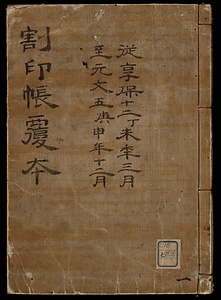 割印帳覆本
従享保十二丁未年三月
至元文五庚申年十二月
一